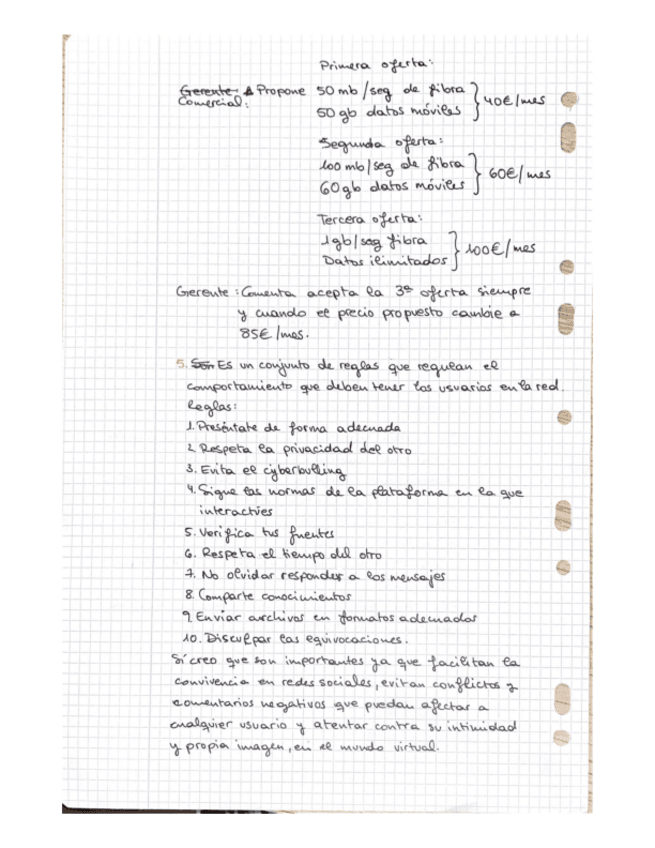 Primera oferta:
Gerente A Propone 50 mb/seg de fibra } 40€/mes
Comercial:
50 gb datos móviles
Segunda oferta:
100 mb/seg de fibra } 60€/mes
60 gb datos móviles
Tercera oferta:
1gb/seg fibra } 100€/mes
Datos ilimitados
Gerente: Comenta acepta la 3ª oferta siempre
y cuando el precio propuesto cambie a
85€/mes.
5. Son Es un conjunto de reglas que regulan el
comportamiento que deben tener los usuarios en la red.
Reglas:
1. Preséntate de forma adecuada
2. Respeta la privacidad del otro
3. Evita el cyberbulling
4. Sigue las normas de la plataforma en la que
interactúes
5. Verifica tus fuentes
6. Respeta el tiempo del otro
7. No olvidar responder a los mensajes
8. Comparte conocimientos
9. Enviar archivos en formatos adecuados
10. Disculpar las equivocaciones.
Sí creo que son importantes ya que facilitan la
convivencia en redes sociales, evitan conflictos y
comentarios negativos que puedan afectar a
cualquier usuario y atentar contra su intimidad
y propia imagen, en el mundo virtual.